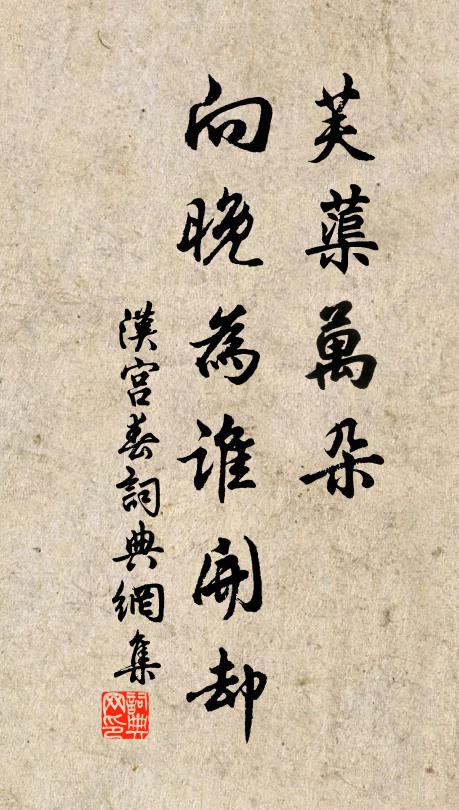 芙蕖萬朵
向晚為誰開却
漢宮春詞典網集
詞典网印